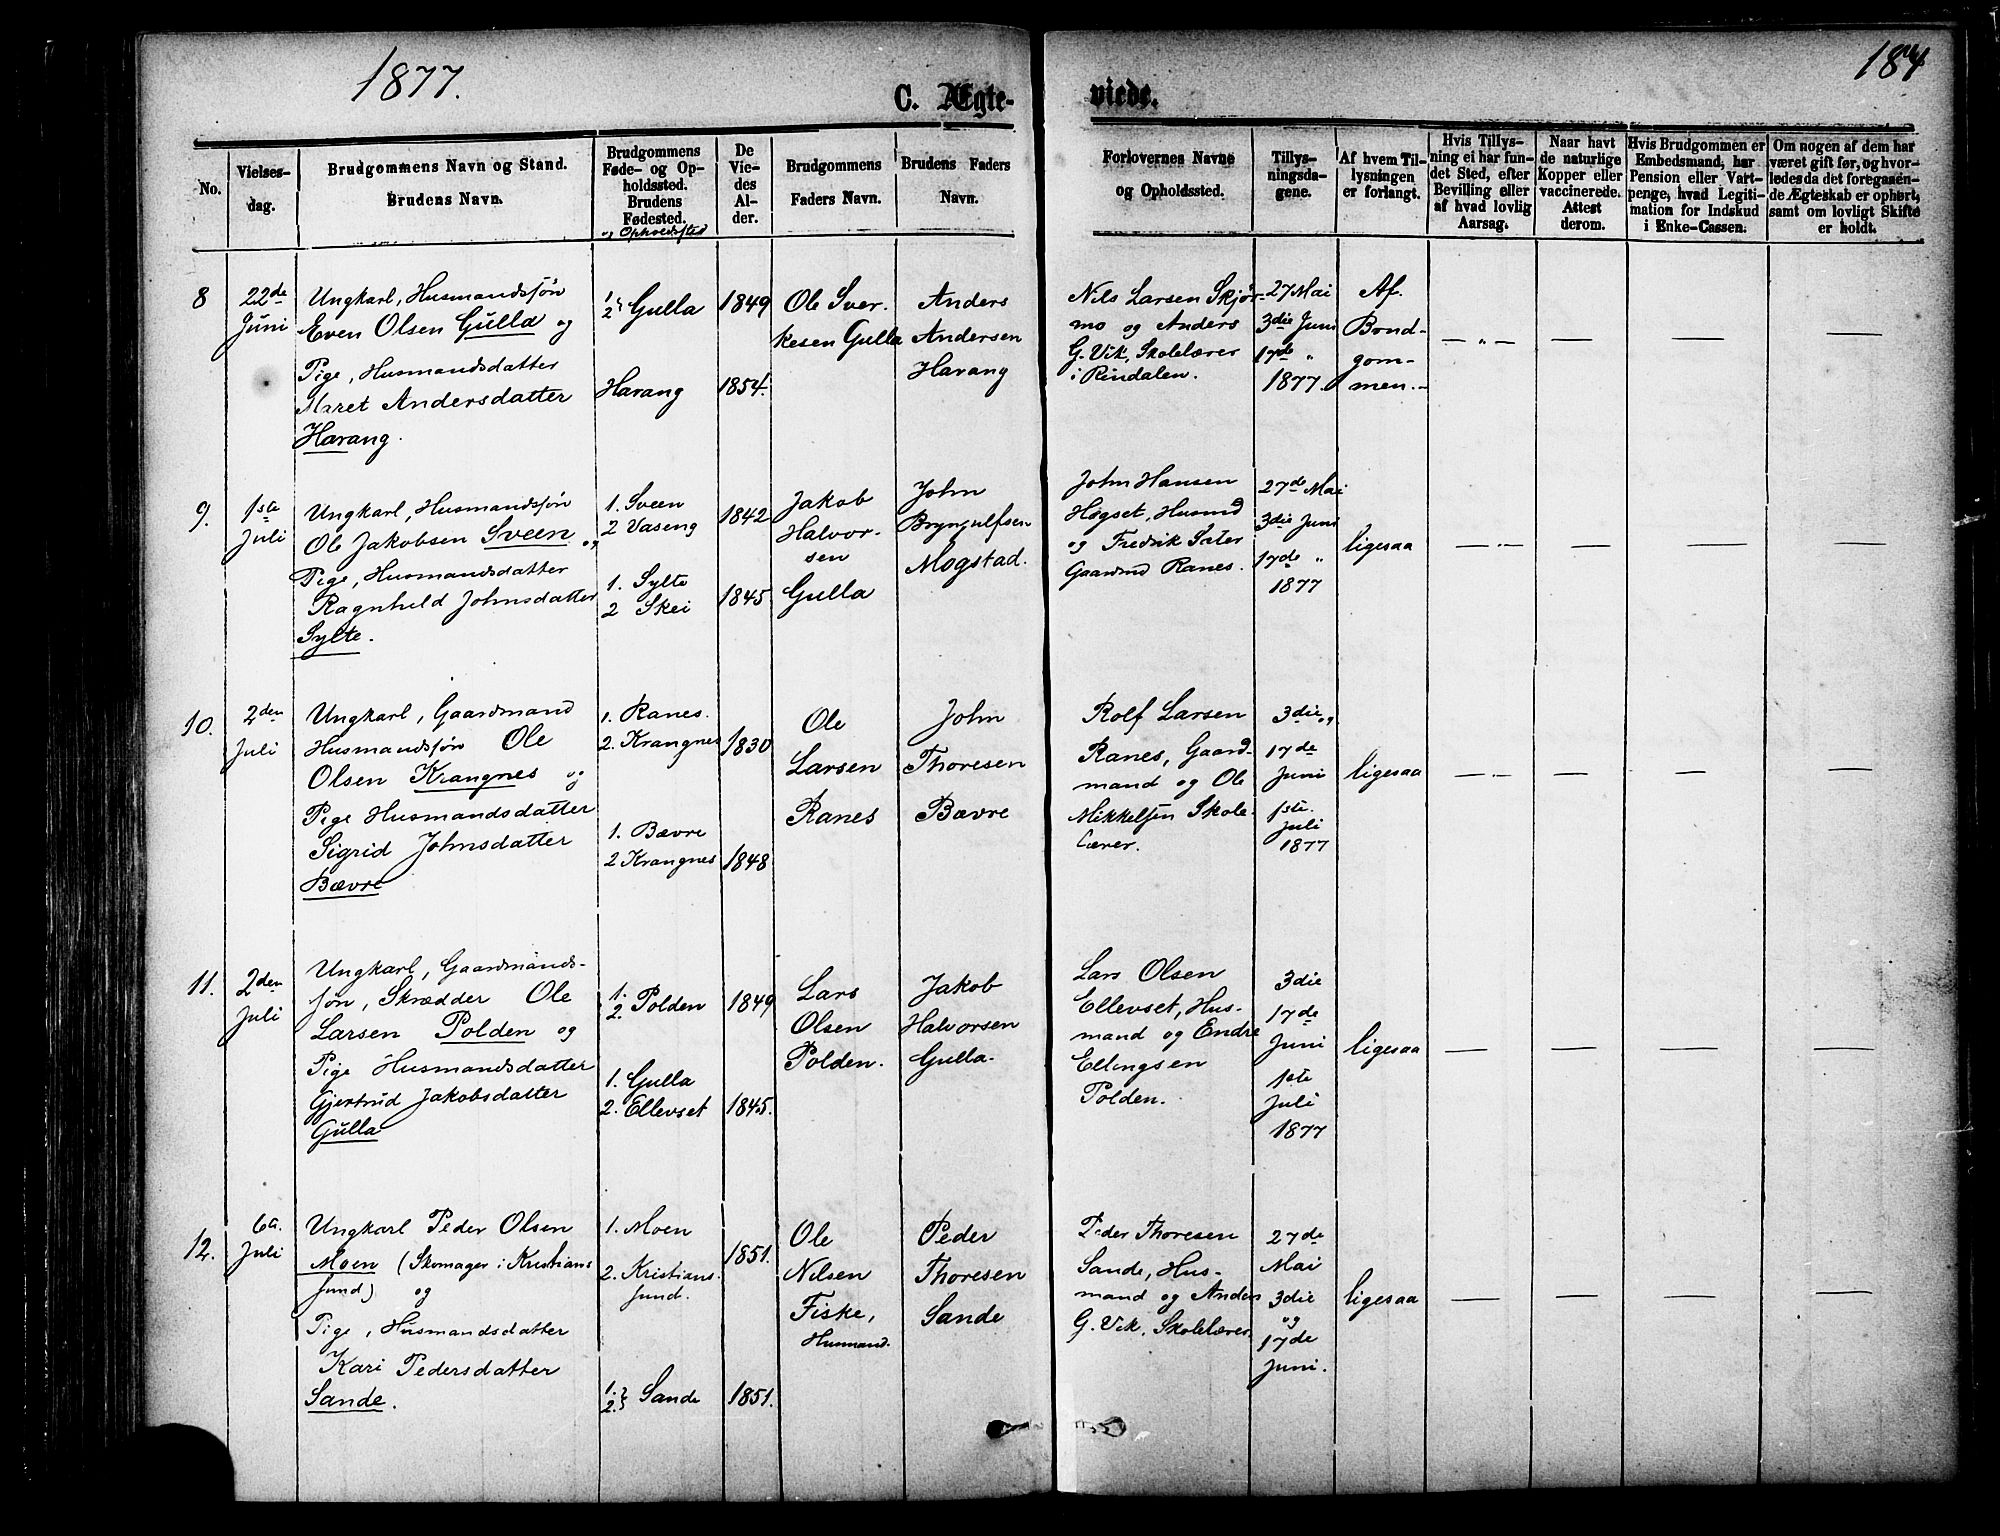 1877.
184
C. Ægte-
viede.
No.
Vielses-
dag.
Brudgommens Navn og Stand.
Brudens Navn.
Brudgommens
Føde- og Op-
holdssted.
Brudens
Fødested.
og Opholdssted
De
Vie-
des
Al-
der.
Brudgommens
Faders Navn.
Brudens Faders
Navn.
Forlovernes Navne
og Opholdssted.
Tillys-
ningsda-
gene.
Af hvem Til-
lysningen
er forlangt.
Hvis Tillys-
ning ei har fun-
det Sted, efter
Bevilling eller
af hvad lovlig
Aarsag.
Naar havt
de naturlige
Kopper eller
vaccinerede.
Attest
derom.
Hvis Brudgommen er
Embedsmand, har
Pension eller Vart-
penge, hvad Legiti-
mation for Indskud
i Enke-Cassen.
Om nogen af dem har
været gift før, og hvor-
ledes da det foregaaen-
de Ægteskab er ophørt,
samt om lovligt Skifte
er holdt.
8
22de
Juni
Ungkarl, Husmandssøn
Even Olsen Gulla og
Pige, Husmandsdatter
Maret Andersdatter
Harang.
1
2 } Gulla
Harang
1849
1854.
Ole Sver-
kesen Gulla
Anders
Andersen
Harang
Nils Larsen Skjør-
mo og Anders
G. Vik, Skolelærer
i Rindalen.
27 Mai
3die Juni
17de "
1877.
Af
Brud-
gom-
men.
— " —
—
—
—
9.
1ste
Juli
Ungkarl, Husmandssøn
Ole Jakobsen Sveen og
Pige, Husmandsdatter
Ragnhild Johnsdatter
Sylte.
1. Sveen
2 Vaseng
1. Sylte
2 Skei
1842
1845
Jakob
Halvor-
sen
Gulla
John
Brynjulfsen
Mogstad.
John Hansen
Høgset, Husmd
og Fredrik Sæter
Gaardmd Ranes.
27de Mai
3die Juni
17de "
1877
ligesaa
— " —
—
—
—
10.
2den
Juli
Ungkarl, Gaardmand
Husmandssøn Ole
Olsen Krangnes og
Pige Husmandsdatter
Sigrid Johnsdatter
Bævre
1. Ranes.
2. Krangnes
1. Bævre
2 Krangnes
1830
1848
Ole
Larsen
Ranes
John
Thoresen
Bævre
Rolf Larsen
Ranes, Gaard-
mand og Ole
Mikkelsen Skole-
lærer.
3die og
17de
Juni
1ste
Juli
1877
ligesaa
— " —
—
—
—
11.
2den
Juli
Ungkarl, Gaardmands-
søn, Skrædder Ole
Larsen Polden og
Pige Husmandsdatter
Gjertrud Jakobsdatter
Gulla
1.
2. } Polden
1. Gulla
2. Ellevset
1849
1845.
Lars
Olsen
Polden.
Jakob
Halvorsen
Gulla.
Lars Olsen
Ellevset, Hus-
mand og Endre
Ellingsen
Polden.
3die
17de
Juni
1ste
Juli
1877
ligesaa
—
—
—
—
12.
6te
Juli
Ungkarl Peder Olsen
Moen (Skomager i Kristians
sund) og
Pige, Husmandsdatter
Kari Pedersdatter
Sande.
1. Moen
2. Kristians-
sund.
1.
2. } Sande
1851.
1851.
Ole
Nilsen
Fiske,
Husmand.
Peder
Thoresen
Sande
Peder Thoresen
Sande, Hus-
mand og Anders
G. Vik, Skolelærer
27de
Mai
3die
og
17de
Juni.
ligesaa
—
—
—
—